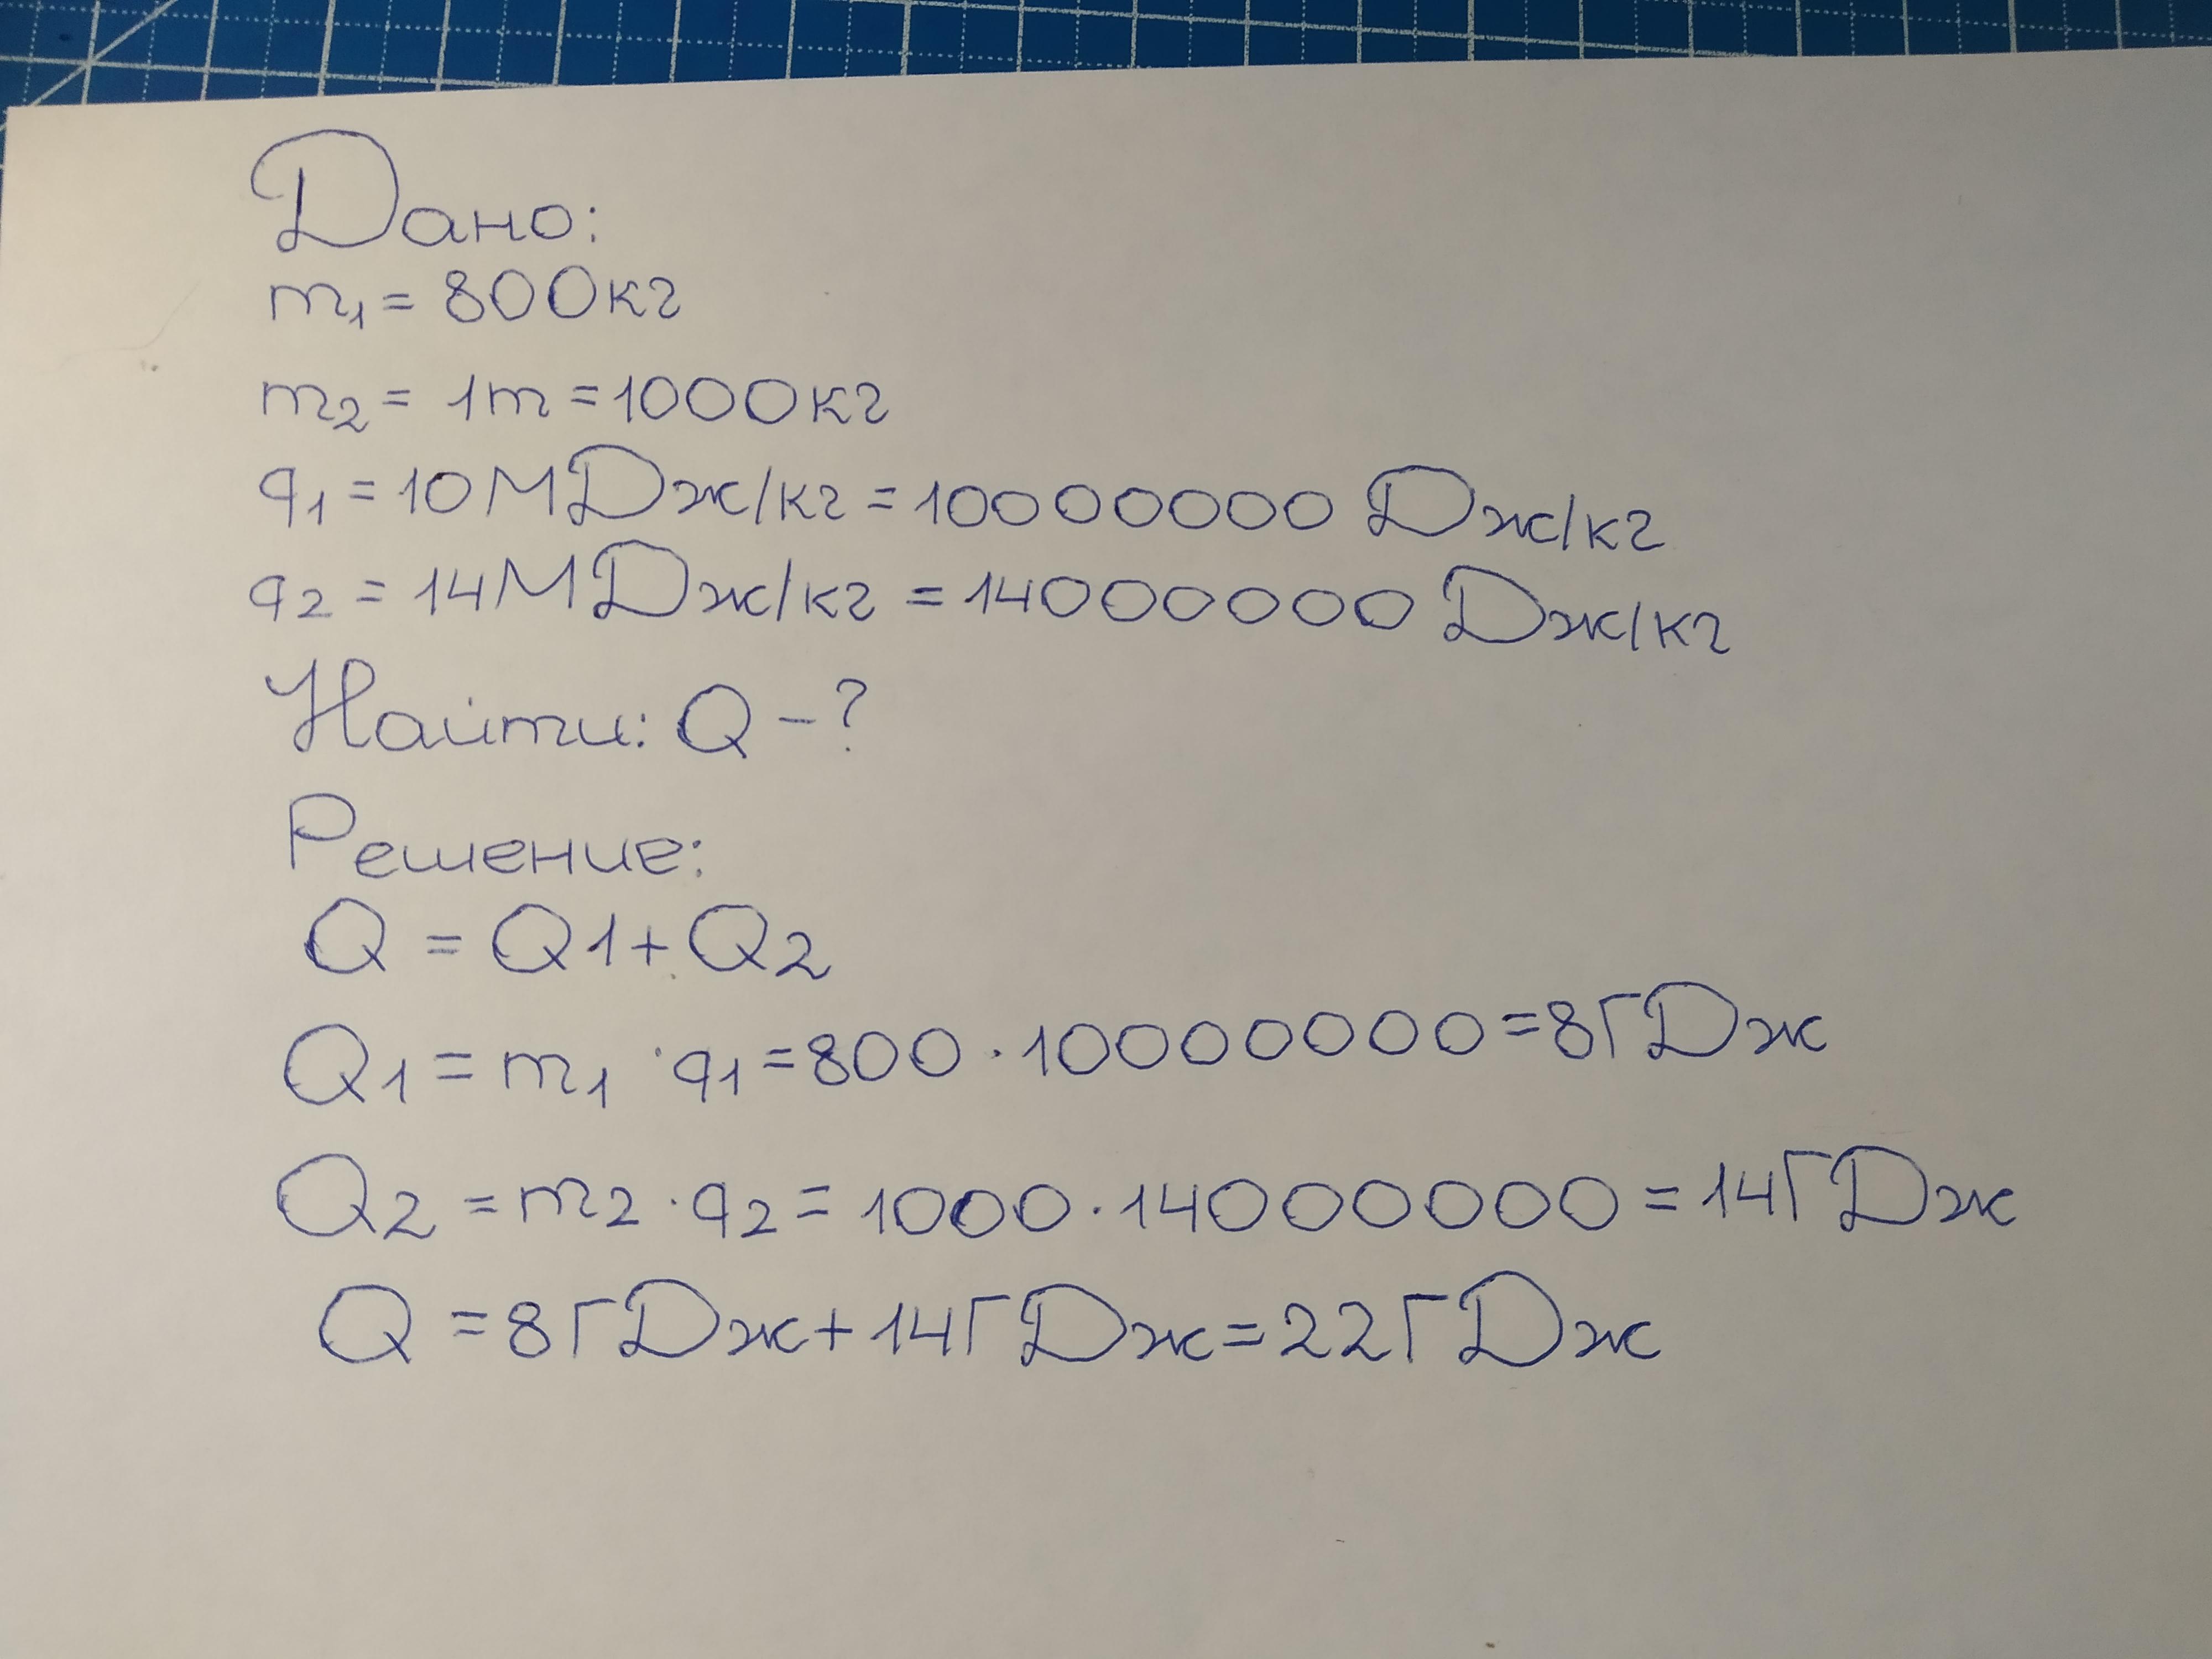 Дано:
m₁ = 800кг
m₂ = 1т = 1000кг
q₁ = 10МДж/кг = 10000000 Дж/кг
q₂ = 14МДж/кг = 14000000 Дж/кг
Найти: Q - ?
Решение:
Q = Q1 + Q₂
Q₁ = m₁ · q₁ = 800 · 10000000 = 8ГДж
Q₂ = m₂ · q₂ = 1000 · 14000000 = 14ГДж
Q = 8ГДж + 14ГДж = 22ГДж